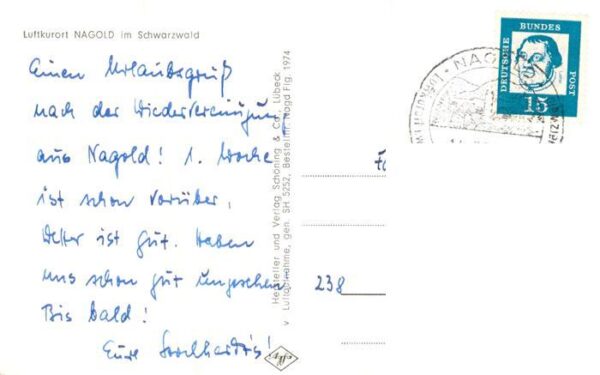 Luftkurort NAGOLD im Schwarzwald
Einen Urlaubsgruß
nach der Wiedervereinigung
aus Nagold! 1. Woche
ist schon vorüber,
Wetter ist gut. Haben
uns schon gut umgesehen
Bis bald!
Eure
Hersteller und Verlag Schöning & Co., Lübeck
v Luftaufnahme, gen. SH 5252, Bestellnr. Nagd Flg. 1974
238
DEUTSCHE
BUNDES
POST
15
NAGOLD